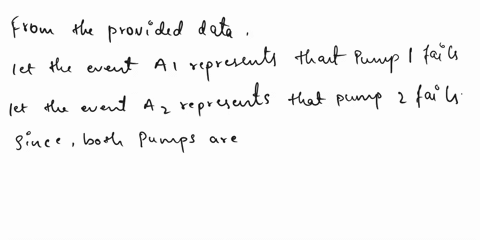 From the provided data.
let the event A1 represents that Pump 1 fails
let the event A2 represents that pump 2 fails.
Since, both Pumps are